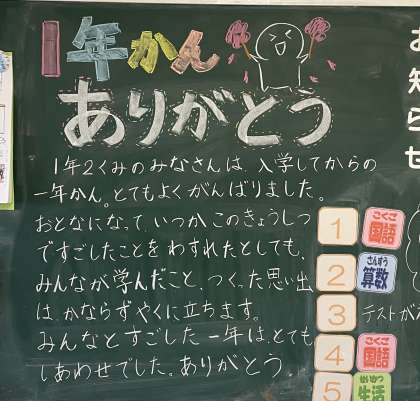 1年かん
ありがとう
1年2くみのみなさんは、入学してからの
一年かん。とてもよくがんばりました。
おとなになって、いつかこのきょうしつ
ですごしたことをわすれたとしても、
みんなが学んだこと、つくった思い出
は、かならずやくに立ちます。
みんなとすごした一年は、とても
しあわせでした。ありがとう。
お知らせ
1 こくご 国語
2 さんすう 算数
3 テストが
4 こくご 国語
5 せいかつ 生活